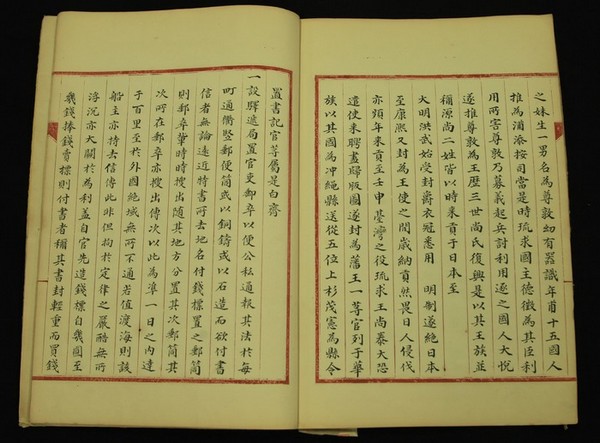 之妹生一男名為尊敦幼有器識年甫十五國人
推為浦添按司當是時琉求國主德徵為其臣利
用所害尊敦乃募義起兵討利用遂之國人大悅
遂推尊敦為王歷三世尚氏復興是以其王族並
稱源尚二姓皆以時來貢于日本至
大明洪武始受封爵衣冠悉用　明制遂絶日本
至康熙又封為王使之間歲納貢然畏日人侵伐
亦頻年來貢至壬申臺灣之役琉求王尚泰大恐
遣使來聘盡歸版圖遂封為藩王一等官列于華
族以其國為冲繩縣送從五位上杉茂憲為縣令
置書記官等屬是白齊
一設驛遞局置官吏郵卒以便公私通報其法於每
町通衢竪郵便筒或以銅鑄或以石造而欲付書
信者無論遠近特書所去地名付錢標置之郵筒
則郵卒肇時時搜出隨其地方分置其次郵筒其
次所在郵卒亦搜出傳次以此為準一日之內達
于百里至於外國絶域無所不通若值渡海則該
船主亦持去信傳此非但拘於定律之嚴酷無所
浮沉亦大關於為利盖自官先造錢標自幾圓至
幾錢捧錢賣標則付書者稱其書封輕重而買錢